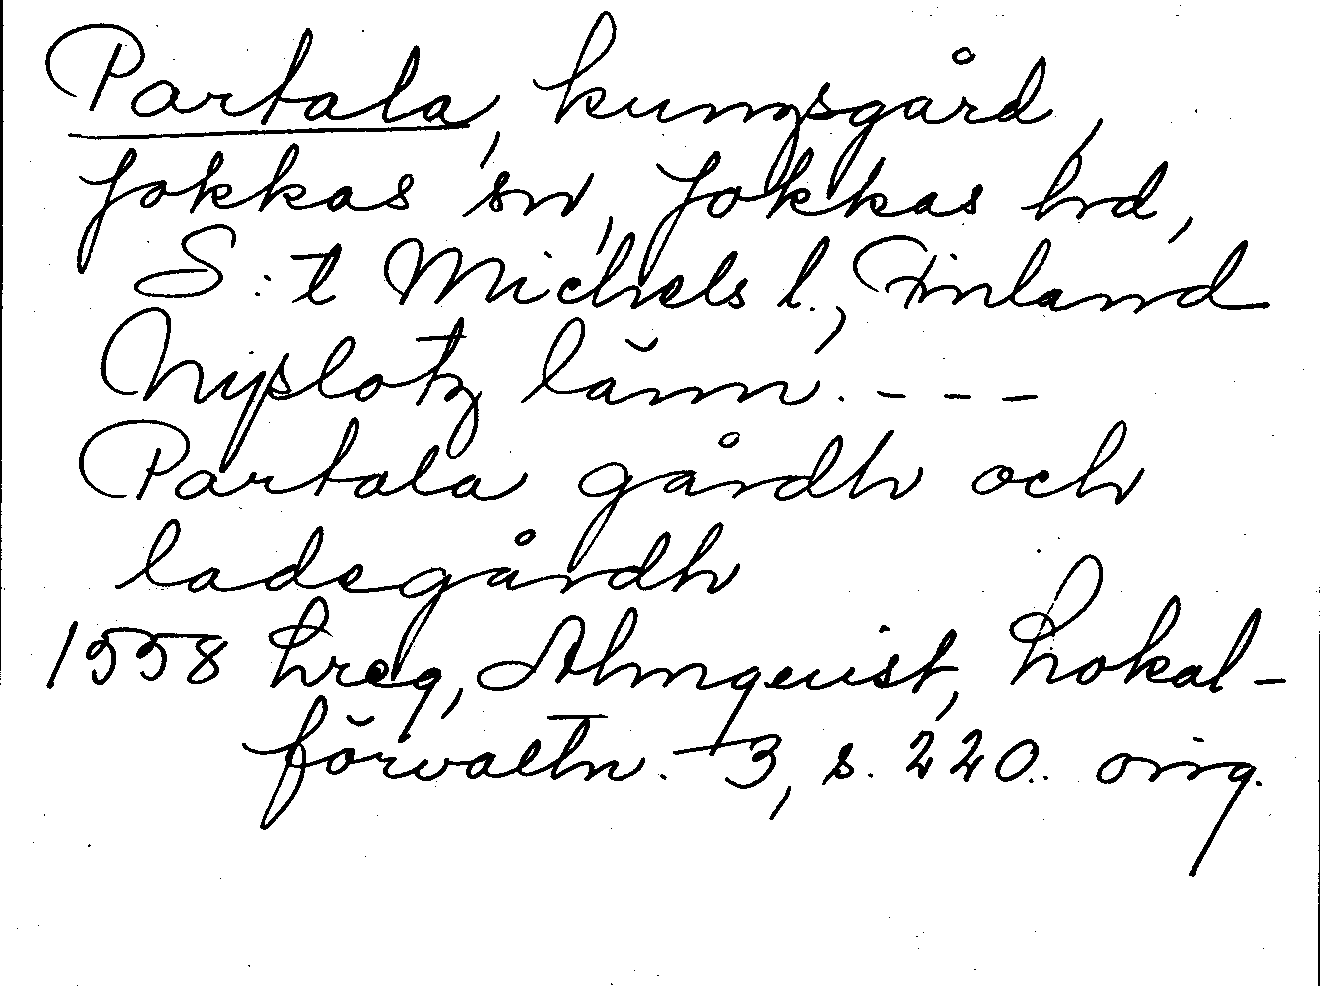 Partala, kungsgård,
Jokkas sn, Jokkas hd,
S:t Michels l., Finland
Nyslotz länn. - - -
Partala gårdh och
ladegårdh
1558 Lreg, Almquist, Lokal-
förvaltn. 3, s. 220. orig.